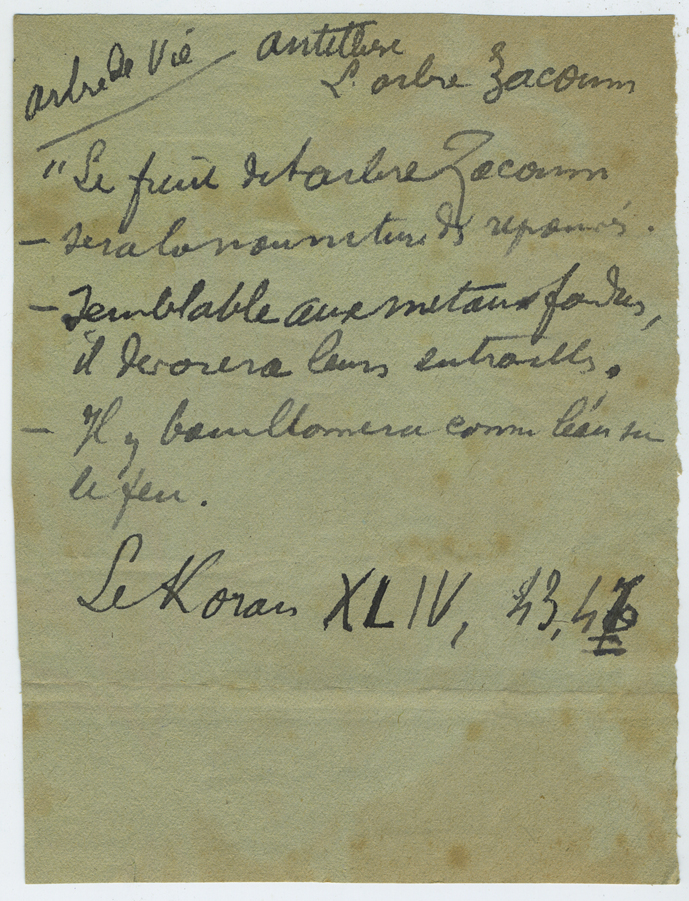 arbre de Vie antithese
L'arbre Zacoum
"Le fruit de l'arbre Zacoum
– sera la nourriture des reprouvés.
– Semblable aux metaux fondus,
il devorera leurs entrailles.
– Il y bouillonnera comme l'eau sur
le feu.
Le Koran XLIV, 43,46